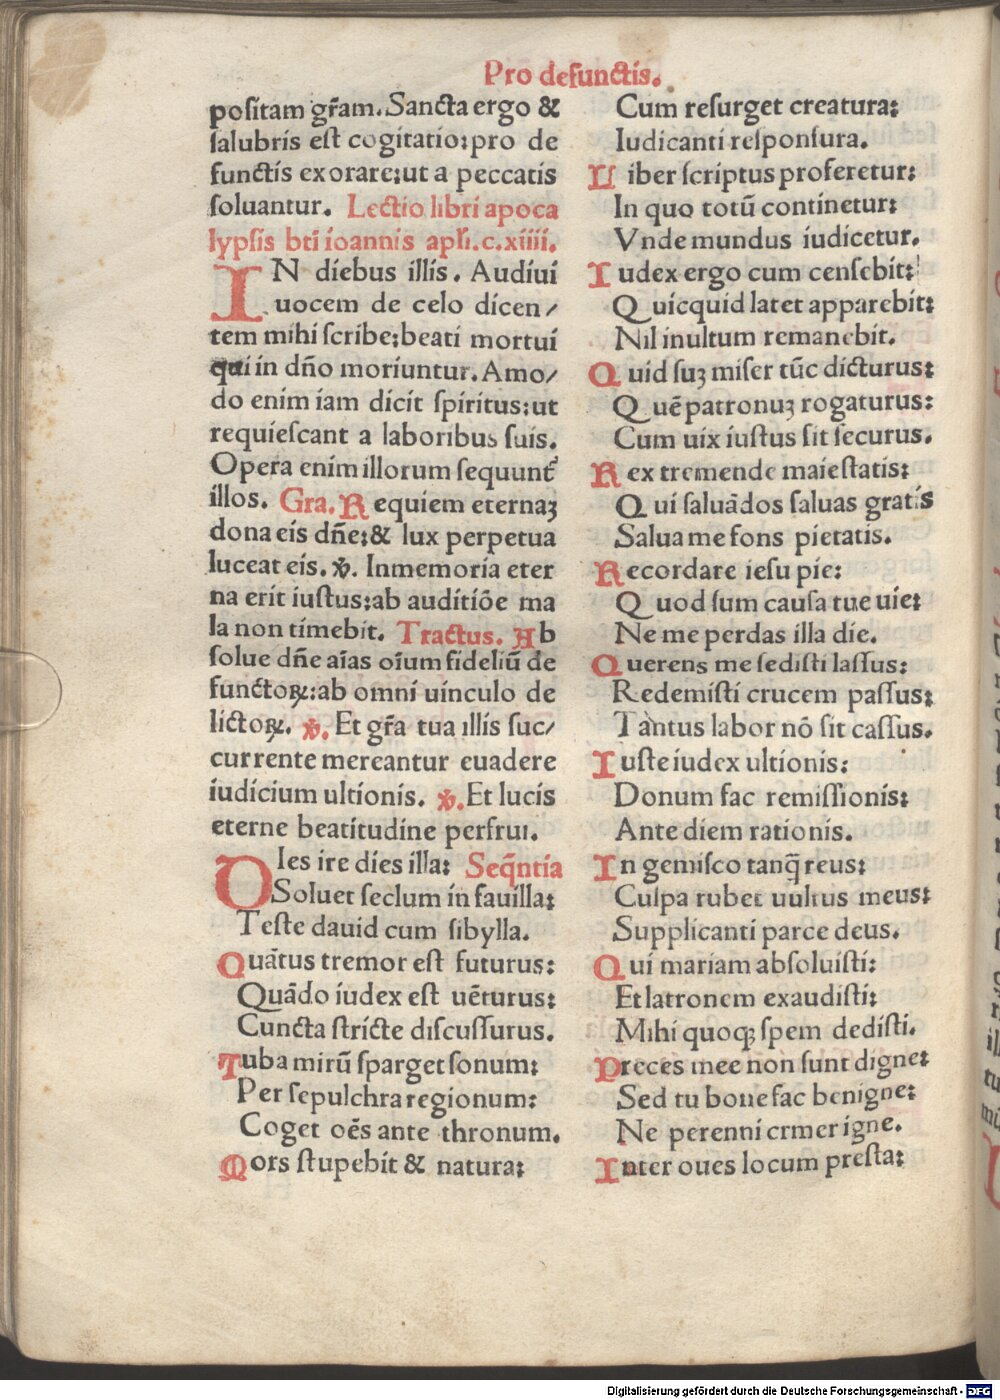 Pro defunctis.
positam gr̄am. Sancta ergo &
salubris est cogitatio: pro de
functis exorare: ut a peccatis
soluantur. Lectio libri apoca
lypsis bt̄i ioannis apl̄i. c. xiiii.
IN diebus illis. Audiui
uocem de celo dicen/
tem mihi scribe: beati mortui
qui in dn̄o moriuntur. Amo/
do enim iam dicit spiritus: ut
requiescant a laboribus suis.
Opera enim illorum sequunt᷑
illos. Gra. Requiem eternaꝫ
dona eis dn̄e: & lux perpetua
luceat eis. ℣. In memoria eter
na erit iustus: ab auditiōe ma
la non timebit. Tractus. Ab
solue dn̄e aīas oīum fideliū de
functoꝝ: ab omni uinculo de
lictoꝝ. ℣. Et gr̄a tua illis suc/
currente mereantur euadere
iudicium ultionis. ℣. Et lucis
eterne beatitudine perfrui.
DIes ire dies illa: Seq̄ntia
Soluet seclum in fauilla:
Teste dauid cum sibylla.
Quātus tremor est futurus:
Quādo iudex est uēturus:
Cuncta stricte discussurus.
Tuba mirū sparget sonum:
Per sepulchra regionum:
Coget oēs ante thronum.
Mors stupebit & natura:
Cum resurget creatura:
Iudicanti responsura.
Liber scriptus proferetur:
In quo totū continetur:
Vnde mundus iudicetur.
Iudex ergo cum censebit:
Quicquid latet apparebit:
Nil inultum remanebit.
Quid suꝫ miser tūc dicturus:
Quē patronuꝫ rogaturus:
Cum uix iustus sit securus.
Rex tremende maiestatis:
Qui saluādos saluas gratis
Salua me fons pietatis.
Recordare iesu pie:
Quod sum causa tue uie:
Ne me perdas illa die.
Querens me sedisti lassus:
Redemisti crucem passus:
Tantus labor nō sit cassus.
Iuste iudex ultionis:
Donum fac remissionis:
Ante diem rationis.
In gemisco tanq̄ reus:
Culpa rubet uultus meus:
Supplicanti parce deus.
Qui mariam absoluisti:
Et latronem exaudisti:
Mihi quoqꝫ spem dedisti.
Preces mee non sunt digne:
Sed tu bone fac benigne:
Ne perenni crmer igne.
Inter oues locum presta:
Digitalisierung gefördert durch die Deutsche Forschungsgemeinschaft - DFG